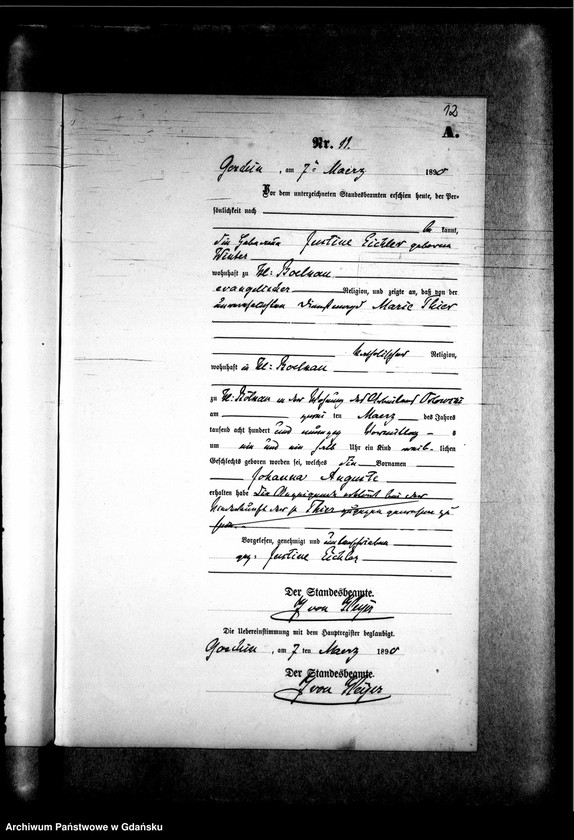 12
A.
Nr. 11.
am 7ten Maerz 1890
Vor dem unterzeichneten Standesbeamten erschien heute, der Per-
sönlichkeit nach
be kannt,
die Hebamme Justine Eichler geborene
Winter
wohnhaft zu Kl: Boelkau
evangelischer Religion, und zeigte an, daß von der
unverehelichten Dienstmagd Marie Thier
katholischer Religion,
wohnhaft in Kl: Boelkau
zu Kl: Bölkau in der Wohnung des
am zwei ten Maerz des Jahres
tausend acht hundert und neunzig Vormittag s
um ein und ein halb Uhr ein Kind weib- lichen
Geschlechts geboren worden sei, welches die Vornamen
Johanna Auguste
erhalten habe Die Anzeigende erklärt bei der
Niederkunft der p. Thier zugegen gewesen zu
sein.
Vorgelesen, genehmigt und unterschrieben
gez: Justine Eichler
Der Standesbeamte.
Die Uebereinstimmung mit dem Hauptregister beglaubigt.
am 7 ten Maerz 1890
Der Standesbeamte.
Archiwum Państwowe w Gdańsku